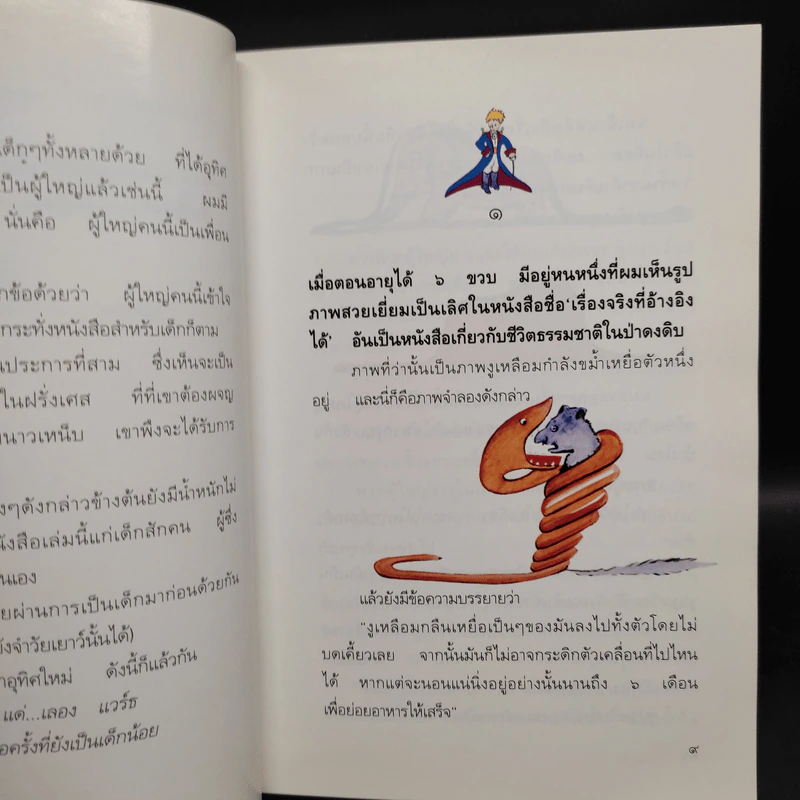 เด็กๆทั้งหลายด้วย ที่ได้อุทิศ
เป็นผู้ใหญ่แล้วเช่นนี้ ผมมี
นั่นคือ ผู้ใหญ่คนนี้เป็นเพื่อน
กข้อด้วยว่า ผู้ใหญ่คนนี้เข้าใจ
กระทั่งหนังสือสำหรับเด็กก็ตาม
นประการที่สาม ซึ่งเห็นจะเป็น
ในฝรั่งเศส ที่ที่เขาต้องผจญ
นาวเหน็บ เขาพึงจะได้รับการ
งๆดังกล่าวข้างต้นยังมีน้ำหนักไม่
นังสือเล่มนี้แก่เด็กสักคน ผู้ซึ่ง
นเอง
ยผ่านการเป็นเด็กมาก่อนด้วยกัน
ยังจำวัยเยาว์นั้นได้)
าอุทิศใหม่ ดังนี้ก็แล้วกัน
แด่...เลอง แวร์ธ
อครั้งที่ยังเป็นเด็กน้อย
๑
เมื่อตอนอายุได้ ๖ ขวบ มีอยู่หนหนึ่งที่ผมเห็นรูป
ภาพสวยเยี่ยมเป็นเลิศในหนังสือชื่อ‘เรื่องจริงที่อ้างอิง
ได้’ อันเป็นหนังสือเกี่ยวกับชีวิตธรรมชาติในป่าดงดิบ
ภาพที่ว่านั้นเป็นภาพงูเหลือมกำลังขม้ำเหยื่อตัวหนึ่ง
อยู่ และนี่ก็คือภาพจำลองดังกล่าว
แล้วยังมีข้อความบรรยายว่า
“งูเหลือมกลืนเหยื่อเป็นๆของมันลงไปทั้งตัวโดยไม่
บดเคี้ยวเลย จากนั้นมันก็ไม่อาจกระดิกตัวเคลื่อนที่ไปไหน
ได้ หากแต่จะนอนแน่นิ่งอยู่อย่างนั้นนานถึง ๖ เดือน
เพื่อย่อยอาหารให้เสร็จ”
๙